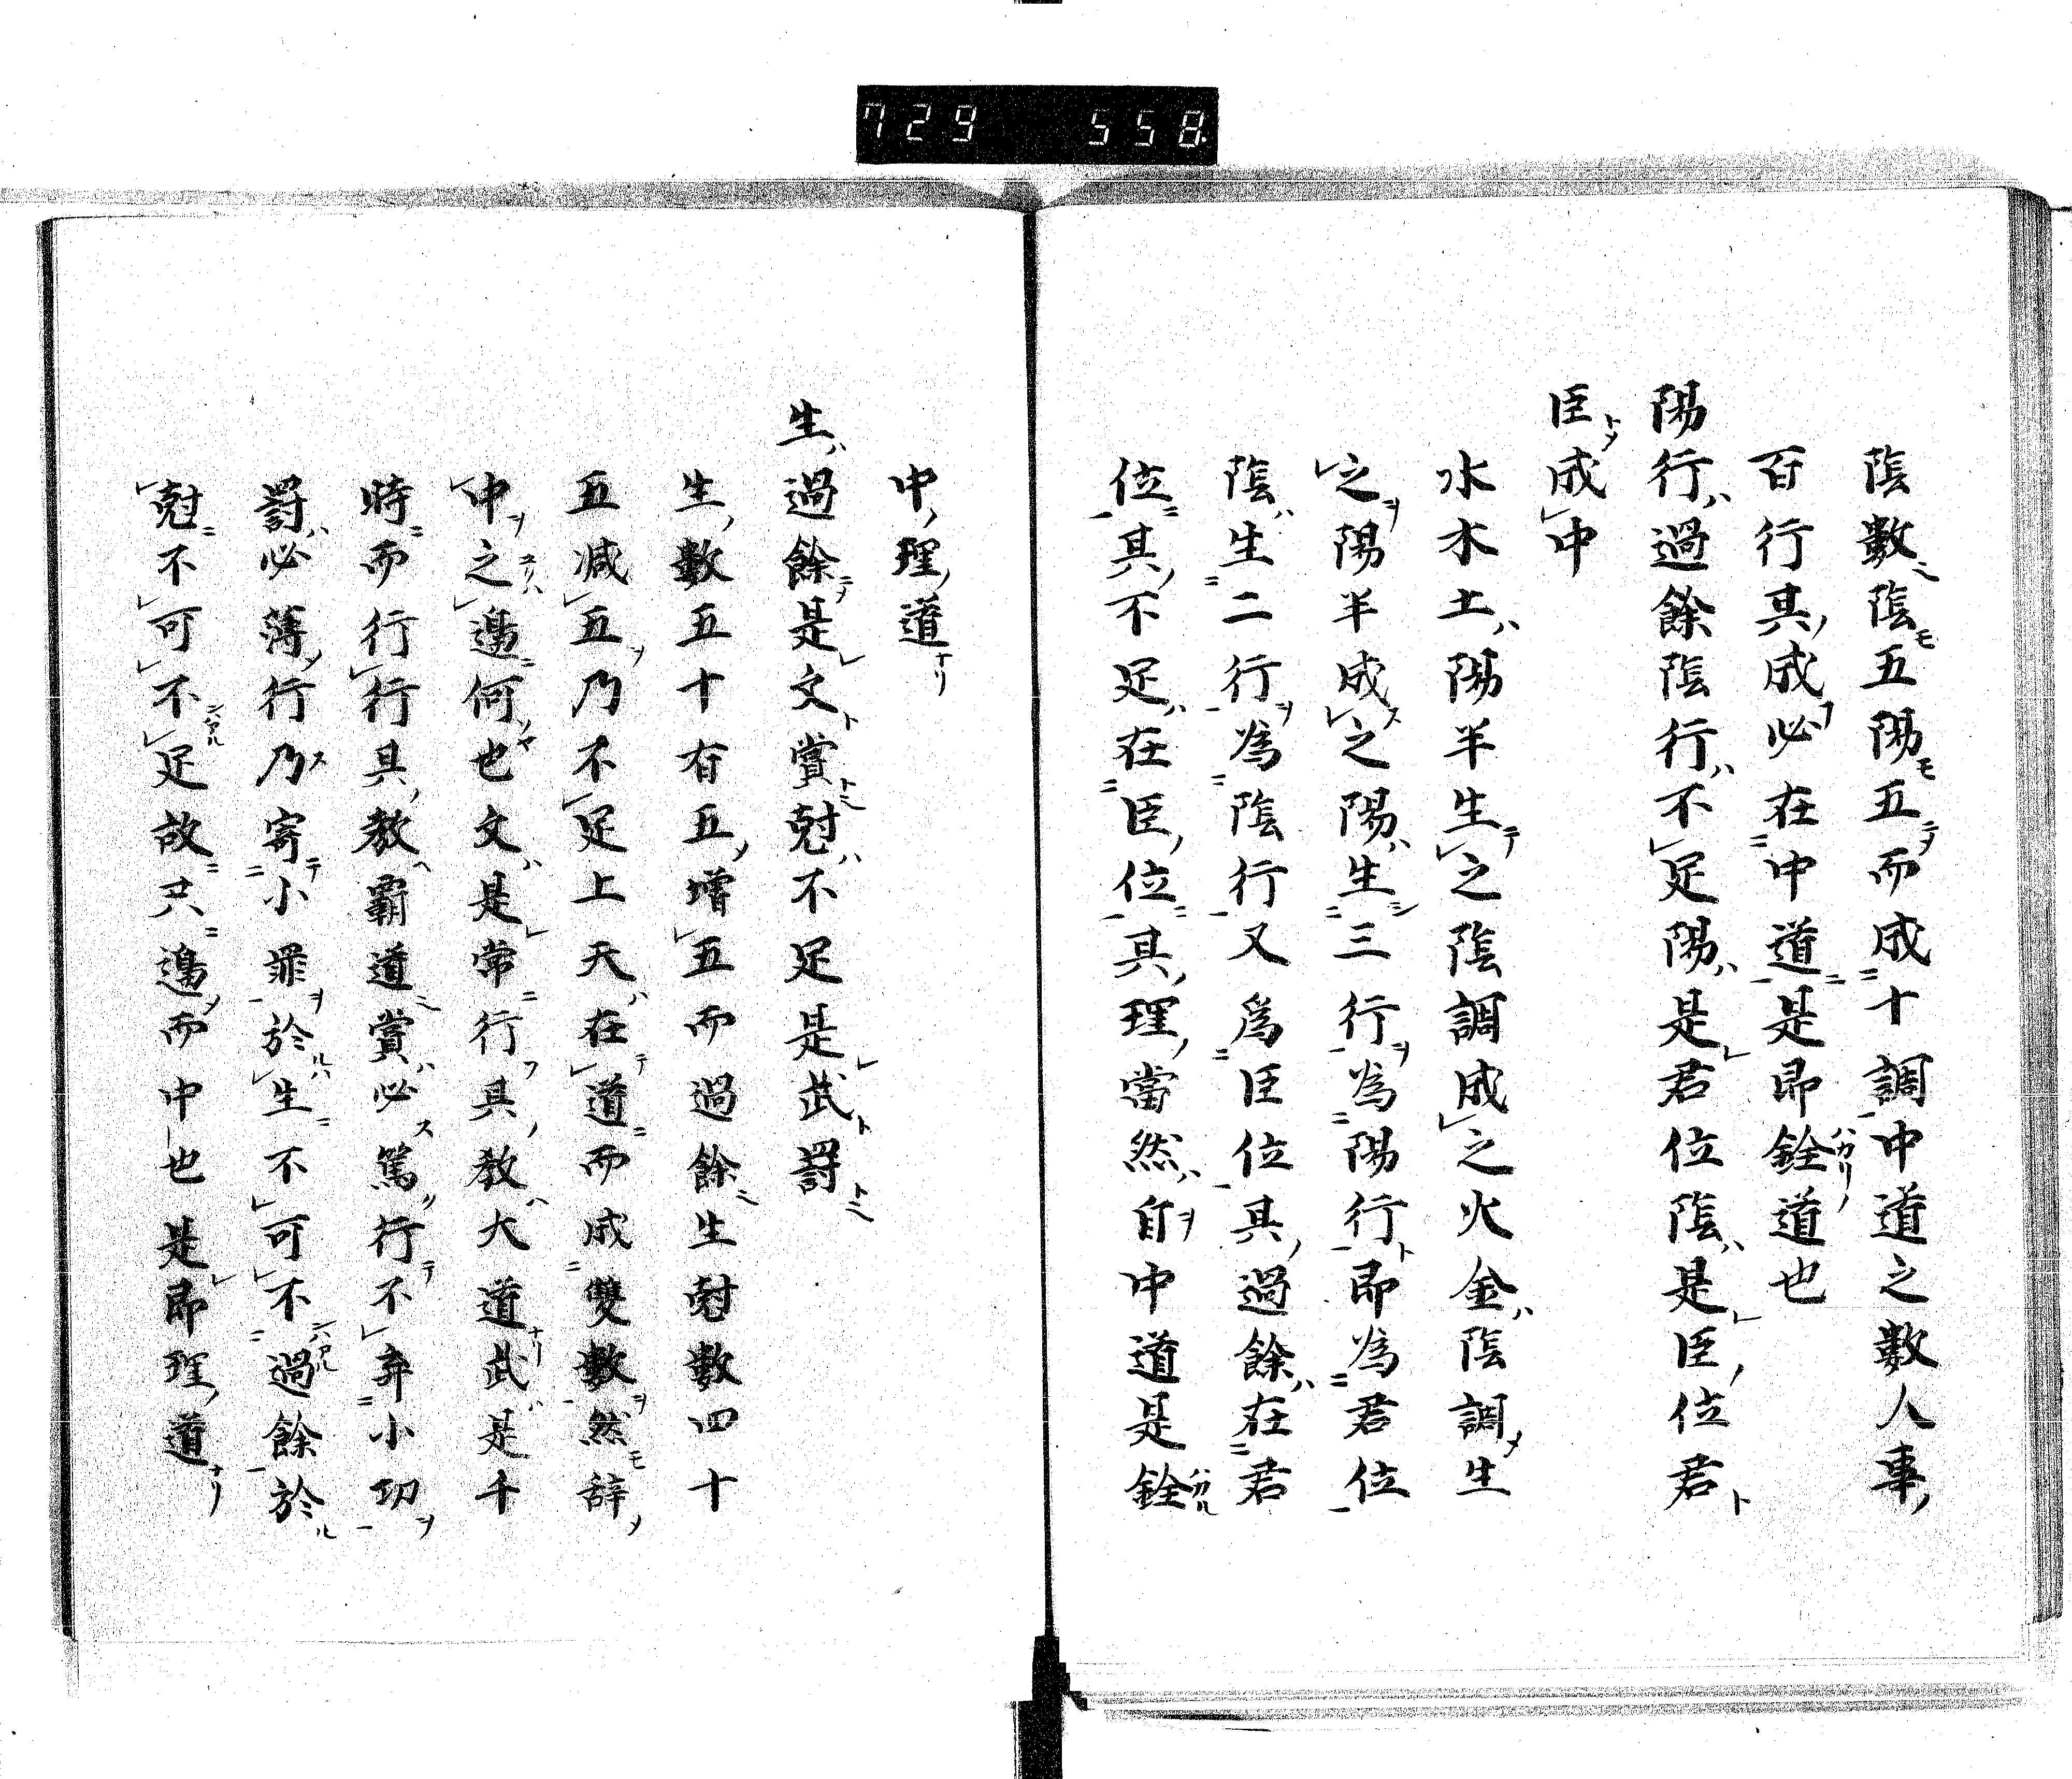 729 558
陰數陰五陽五而成十調中道之數人事
百行其成必在中道是即銓道也
陽行過餘陰行不足陽是君位陰是臣位君
臣成中
水木土陽半生之陰調成之火金陰調生
之陽半成之陽生三行為陽行即為君位
陰生二行為陰行又爲臣位其過餘在君
位其不足在臣位其理當然自中道是銓
中理道
生過餘是文賞尅不足是武罸
生數五十有五增五而過餘生尅數四十
五减五乃不足上天在道而成雙數然辞
中之邊何也文是常行其教大道武是千
時而行行其教霸道賞必篤行不弃小切
罸必薄行乃寄小罪於生不可不過餘於
尅不可不足故只邊而中也是即理道